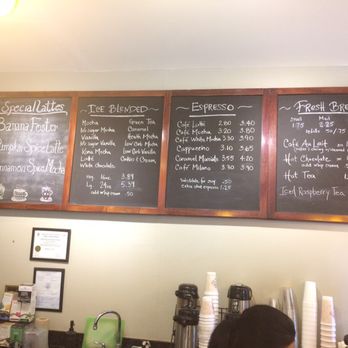 Special Lattes
Banana Foster
Pumpkin Spice Latte
Cinnamon Spice Mocha
Ice Blended
Mocha Green Tea
No Sugar Mocha Caramel
Vanilla Heath Mocha
No Sugar Vanilla Low Carb Mocha
Kona Mocha Low Carb Vanilla
Latte Cookies & Cream
White Chocolate
reg 16oz 3.89
Lg 24oz 5.39
add whip cream .50
Espresso
Café Latte 2.80 3.40
Café Mocha 3.20 3.80
Café White Mocha 3.30 3.90
Cappuccino 3.10 3.65
Caramel Macchiato 3.55 4.20
Café Milano 3.30 3.90
Substitute for soy .50
Extra shot espresso 1.25
Fresh Bre
Small Med
1.75 2.25
Refills .50/.75
Cafe Au Lait
Hot Chocolate
add whip cream
Hot Tea
Iced Raspberry Tea